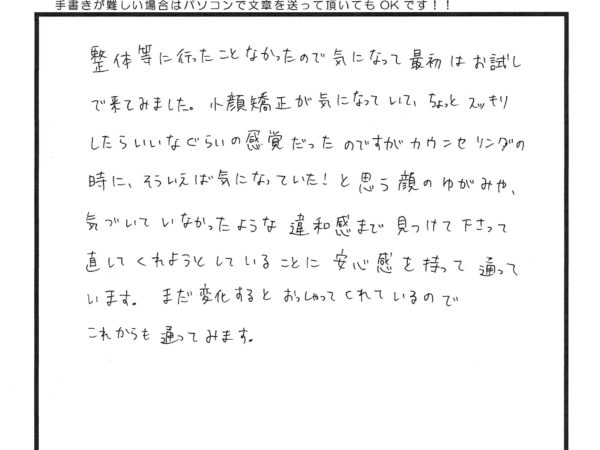 手書きが難しい場合はパソコンで文章を送って頂いてもOKです！！
整体等に行ったことなかったので気になって最初はお試し
で来てみました。小顔矯正が気になっていて、ちょっとスッキリ
したらいいなぐらいの感覚だったのですがカウンセリングの
時に、そういえば気になっていた！と思う顔のゆがみや、
気づいていなかったような違和感まで見つけて下さって
直してくれようとしていることに安心感を持って通って
います。まだ変化するとおっしゃってくれているので
これからも通ってみます。